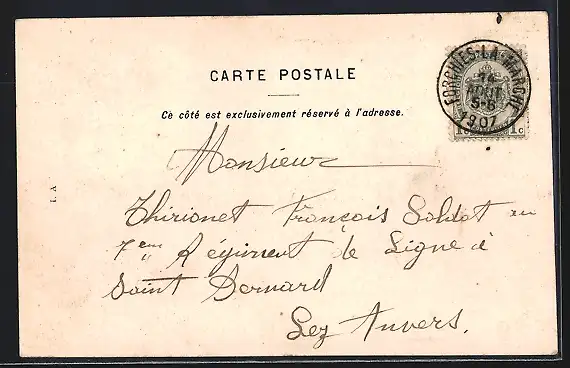 CARTE POSTALE
Ce côté est exclusivement réservé à l'adresse.
FORCHIES-LA-MARCHE
14
AOUT
5-6
1907
1c 1c
I. A
Monsieur
Thirionet François Soldat au
7eme Régiment de Ligne à
Saint Bernard
Lez Anvers.